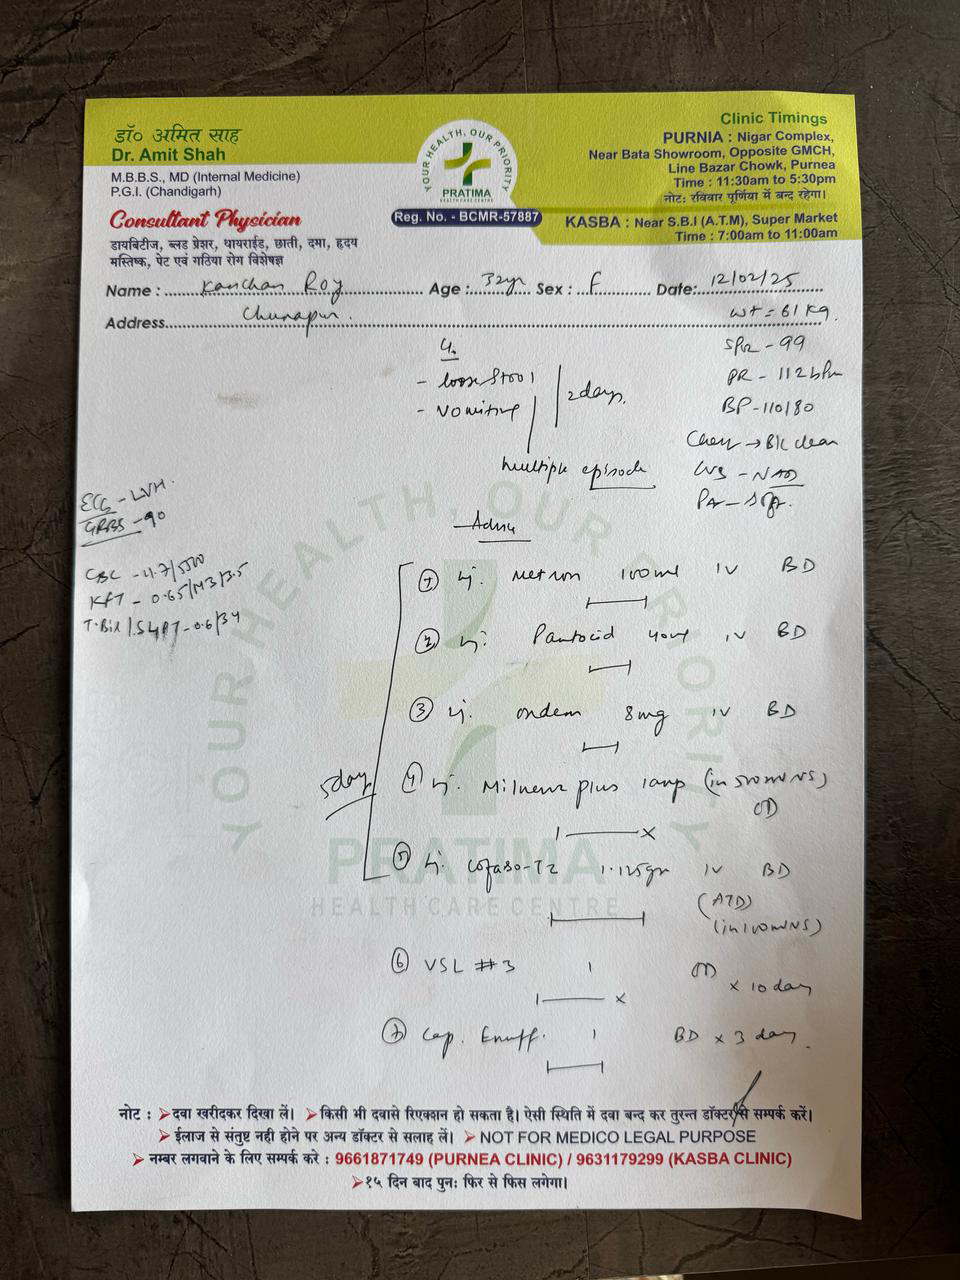 डॉ० अमित साह
Dr. Amit Shah
M.B.B.S., MD (Internal Medicine)
P.G.I. (Chandigarh)
Consultant Physician
डायबिटीज, ब्लड प्रेशर, थायराईड, छाती, दमा, हृदय
मस्तिष्क, पेट एवं गठिया रोग विशेषज्ञ
YOUR HEALTH, OUR PRIORITY
PRATIMA
HEALTH CARE CENTRE
Reg. No. - BCMR-57887
Clinic Timings
PURNIA : Nigar Complex,
Near Bata Showroom, Opposite GMCH,
Line Bazar Chowk, Purnea
Time : 11:30am to 5:30pm
नोट: रविवार पूर्णिया में बन्द रहेगा।
KASBA : Near S.B.I (A.T.M), Super Market
Time : 7:00am to 11:00am
Name : Kanchan Roy Age : 32yr Sex : F Date: 12/02/25
Address Chunapur.
wt = 61 kg
SPo2 - 99
PR - 112 bpm
BP - 110/80
Chest → B/L clear
CVS - NAD
PA - Soft
- loose stool
- Vomiting
2 days.
multiple episode
ECG - LVH.
GRBS - 90
CBC - 11.7/5500
KFT - 0.65/143/3.5
T.Bil/SGPT - 0.6/34
Adm
5 day
① Inj. Metron 100ml IV BD
② Inj. Pantocid 40mg IV BD
③ Inj. Ondem 8mg IV BD
④ Inj. Milneuro plus 1amp (in 500ml NS) OD
1 x
⑤ Inj. Cofaso-TZ 1.125gm IV BD
(ATD)
(in 100ml NS)
⑥ VSL #3 1 OD x 10 day
1 x
⑦ Cap. Enuff. 1 BD x 3 day.
YOUR HEALTH, OUR PRIORITY
PRATIMA
HEALTH CARE CENTRE
नोट : ➤दवा खरीदकर दिखा लें। ➤किसी भी दवासे रिएक्शन हो सकता है। ऐसी स्थिति में दवा बन्द कर तुरन्त डॉक्टर से सम्पर्क करें।
➤ईलाज से संतुष्ट नही होने पर अन्य डॉक्टर से सलाह लें। ➤ NOT FOR MEDICO LEGAL PURPOSE
➤ नम्बर लगवाने के लिए सम्पर्क करे : 9661871749 (PURNEA CLINIC) / 9631179299 (KASBA CLINIC)
➤१५ दिन बाद पुनः फिर से फिस लगेगा।